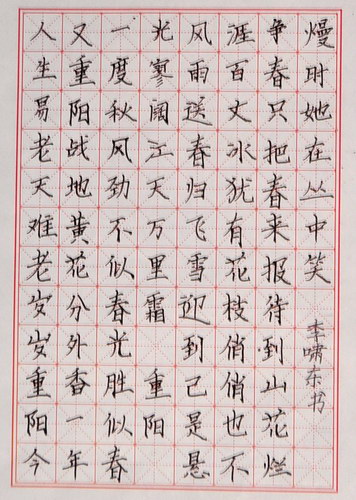 人生易老天难老岁岁重阳今
又重阳战地黄花分外香一年
一度秋风劲不似春光胜似春
光寥阔江天万里霜 重阳
风雨送春归飞雪迎到己是悬
涯百丈冰犹有花枝俏俏也不
争春只把春来报待到山花烂
熳时她在丛中笑
李啸东书